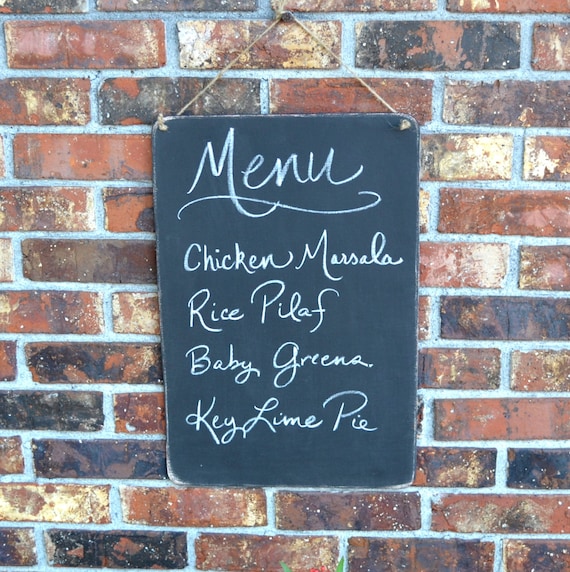 Menu
Chicken Marsala
Rice Pilaf
Baby Greens.
Key Lime Pie